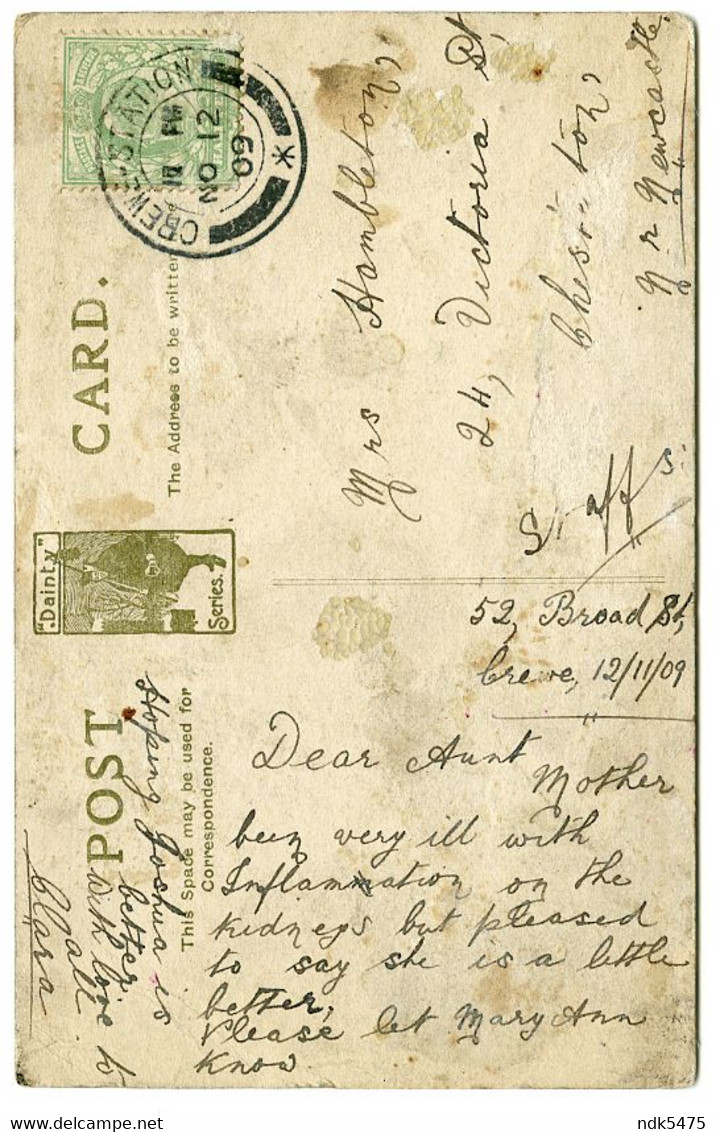 POST CARD.
"Dainty"
Series.
This Space may be used for
Correspondence.
The Address to be written
CREWE-STATION
PM
NO 12
09
52, Broad St,
Crewe, 12/11/09
Dear Aunt
Mother
been very ill with
Inflammation on the
kidneys but pleased
to say she is a little
better,
Please let Mary Ann
know.
Hoping Joshua is
better
with love to
all
Clara
Mrs Hambleton,
24, Victoria St,
Chesterton,
Nr Newcastle.
Staffs.
ndk5475